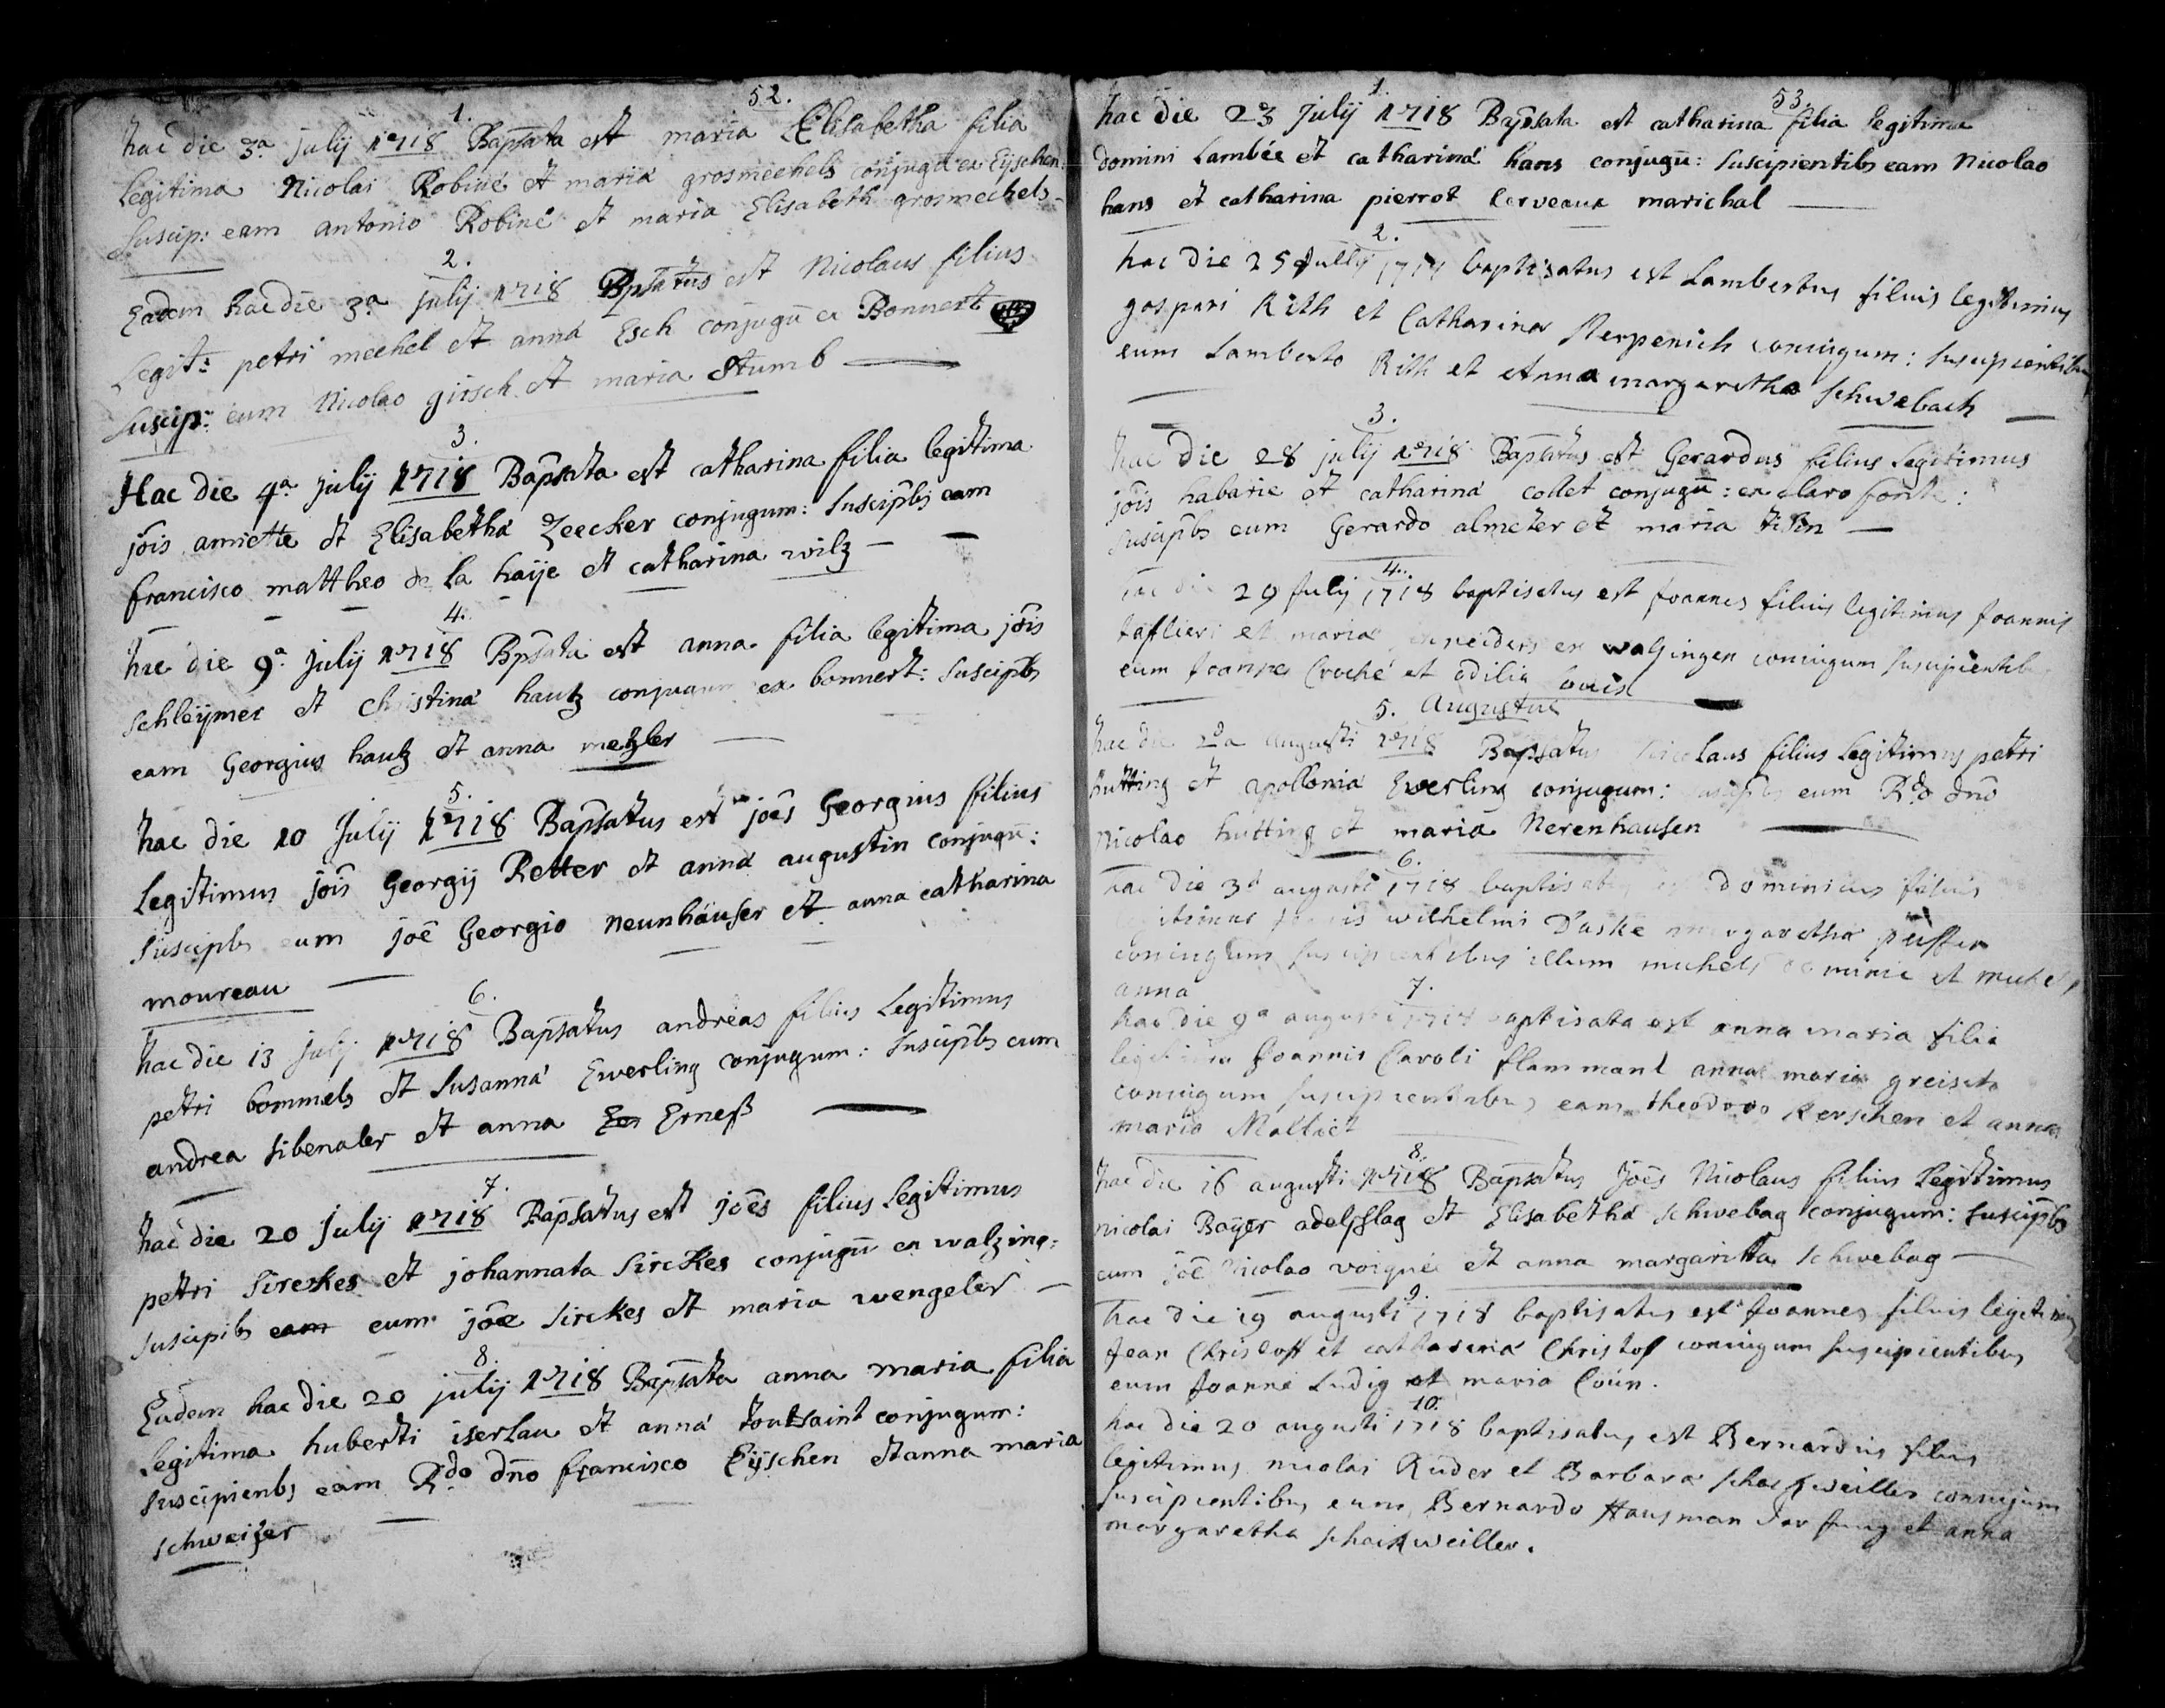 52.
1.
hac die 3a. july 1718 Bapsata est maria Elisabetha filia
legitima Nicolai Robiné et mariá grosmechels conjugū ex Eyschen:
suscip: eam antonio Robiné et maria Elisabeth grosmechels
2.
Eadem hac die 3a july 1718 Bpsatus est Nicolaus filius
Legit: petri mechel et anná Esch conjugū ex Bonnert
suscip: eum Nicolao girsch et maria Stumb
3.
Hac die 4a. july 1718 Bapsata est catharina filia legitima
jōis amiette et Elisabethá Zeecker conjugum: suscipbs eam
francisco mattheo de la haije et catharina wilz
4.
hac die 9a. july 1718 Bpsata est anna filia legitima jōis
schleijmer et christiná hautz conjugum ex bonnert: suscipbs
eam Georgius hautz et anna metzler
5.
hac die 10 July 1718 Bapsatus est joēs Georgius filius
legitimus jōis Georgij Retter et anná augustin conjugū:
suscipbs eum joē Georgio neunhäuser et anna catharina
moureau
6.
hac die 13 july 1718 Bapsatus andreas filius legitimus
petri bommels et susanná Ewerling conjugum: suscipbs eum
andrea sibenaler et anna Erneß
7.
hac die 20 July 1718 Bapsatus est joēs filius legitimus
petri Sirckes et johannata Sirckes conjugū ex walzing:
suscipibs eam eum joē Sirckes et maria wengeler
8.
Eadem hac die 20 july 1718 Bapsata anna maria filia
legitima huberti iserlau et anná toutsaint conjugum:
suscipienbs eam R.do dno francisco Eijschen et anna maria
schweizer
53.
1.
hac die 23 July 1718 Bapsata est catharina filia legitima
domini Lambée et catharinā hans conjugū: suscipientibs eam Nicolao
hans et catharina pierrot Cerveaux marichal
2.
hac die 25 Jully 1718 baptisatus est Lambertus filius legitimus
gaspari Rith et Catharinae Kerpenich coniugum: suscipientibus
eum Lamberto Rith et Anna margaretha schwebach
3.
hac die 28 july 1718 Bapsatus est Gerardus filius Legitimus
jōis habarie et catharinā collet conjugū: ex claro fonte:
suscipbs eum Gerardo almeter et maria
4.
hac die 29 July 1718 baptisatus est Joannes filius legitimus Joannis
et mariae ex walzingen coniugum suscipientibus
eum Joanne Croché et odilia
5. Augustus
hac die 2da augusti 1718 Bapsatus Nicolaus filius legitimus petri
hutting et apolloniá Ewerling conjugum: suscipbs eum R.do dno
Nicolao hutting et maria Nerenhausen
6.
hac die 3a augusti 1718 baptisatus est dominicus filius
legitimus Joannis wilhelmi Daske margaretha
coniugum suscipientibus illum michels dominic et michels
anna
7.
hac die 9a augusti 1718 baptisata est anna maria filia
legitima Joannis Caroli flammant annae maria
coniugum suscipientibus eam theodoro Kerschen et anna
maria
8.
hac die 16 augusti 1718 Bapsatus joēs Nicolaus filius legitimus
nicolai Baÿer adelpslag et Elisabethá schwebag conjugum: suscipbs
eum joē Nicolao voigné et anna margaritta schwebag
9.
hac die 19 augusti 1718 baptisatus est Joannes filius legitimus
Jean et catharinā Christof coniugum suscipientibus
eum Joanne Ludig et maria
10.
hac die 20 augusti 1718 baptisatus est Bernardus filius
legitimus nicolai Ruder et Barbara schackweiller coniugum
suscipientibus eum Bernardo Hausman der Jung et anna
margaretha schackweiller.